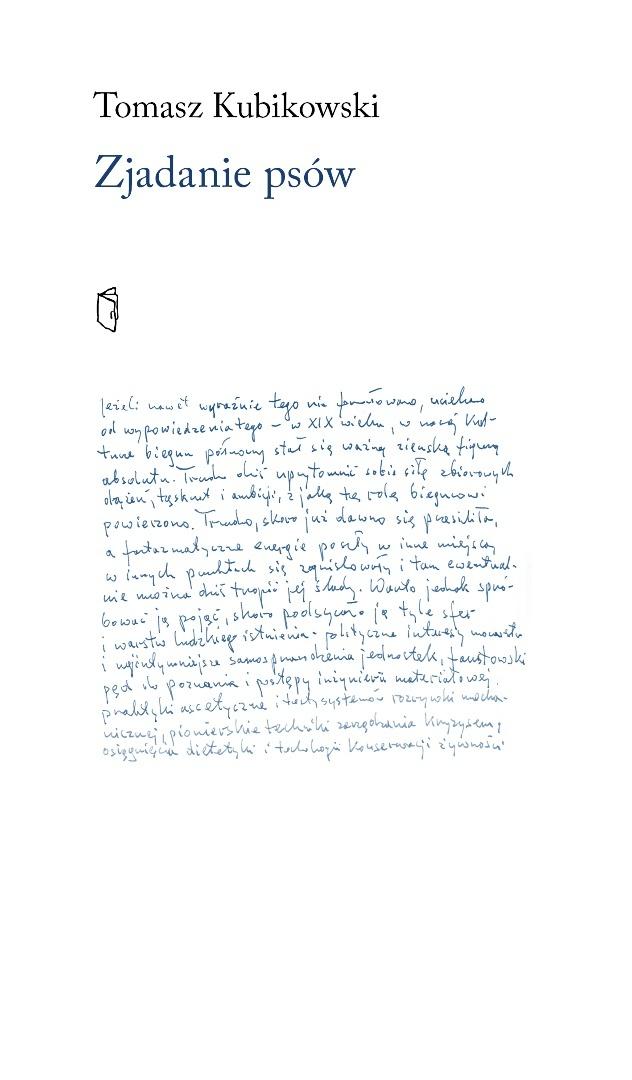 Tomasz Kubikowski
Zjadanie psów
Jeżeli nawet wyraźnie tego nie
od wypowiedzenia tego – w XIX wieku, w naszej kul-
turze biegun północny stał się ważną ziemską figurą
absolutu. Trudno dziś uprzytomnić sobie siłę zbiorowych
dążeń, tęsknot i ambicji, z jaką tę rolę biegunowi
powierzono. Trudno, skoro już dawno się przesiliła,
a fantazmatyczne energie poszły w inne miejsca,
w innych punktach się zogniskowały i tam ewentual-
nie można dziś tropić jej ślady. Warto jednak spró-
bować ją pojąć, skoro podsycało ją tyle sfer
i warstw ludzkiego istnienia: polityczne interesy mocarstw
i najintymniejsze samosprawdzenia jednostek, faustowski
pęd do poznania i postępy inżynierii materiałowej,
praktyki ascetyczne i rozrywki mecha-
nicznej, pionierskie techniki zarządzania kryzysem,
osiągnięcia dietetyki i technologii konserwacji żywności